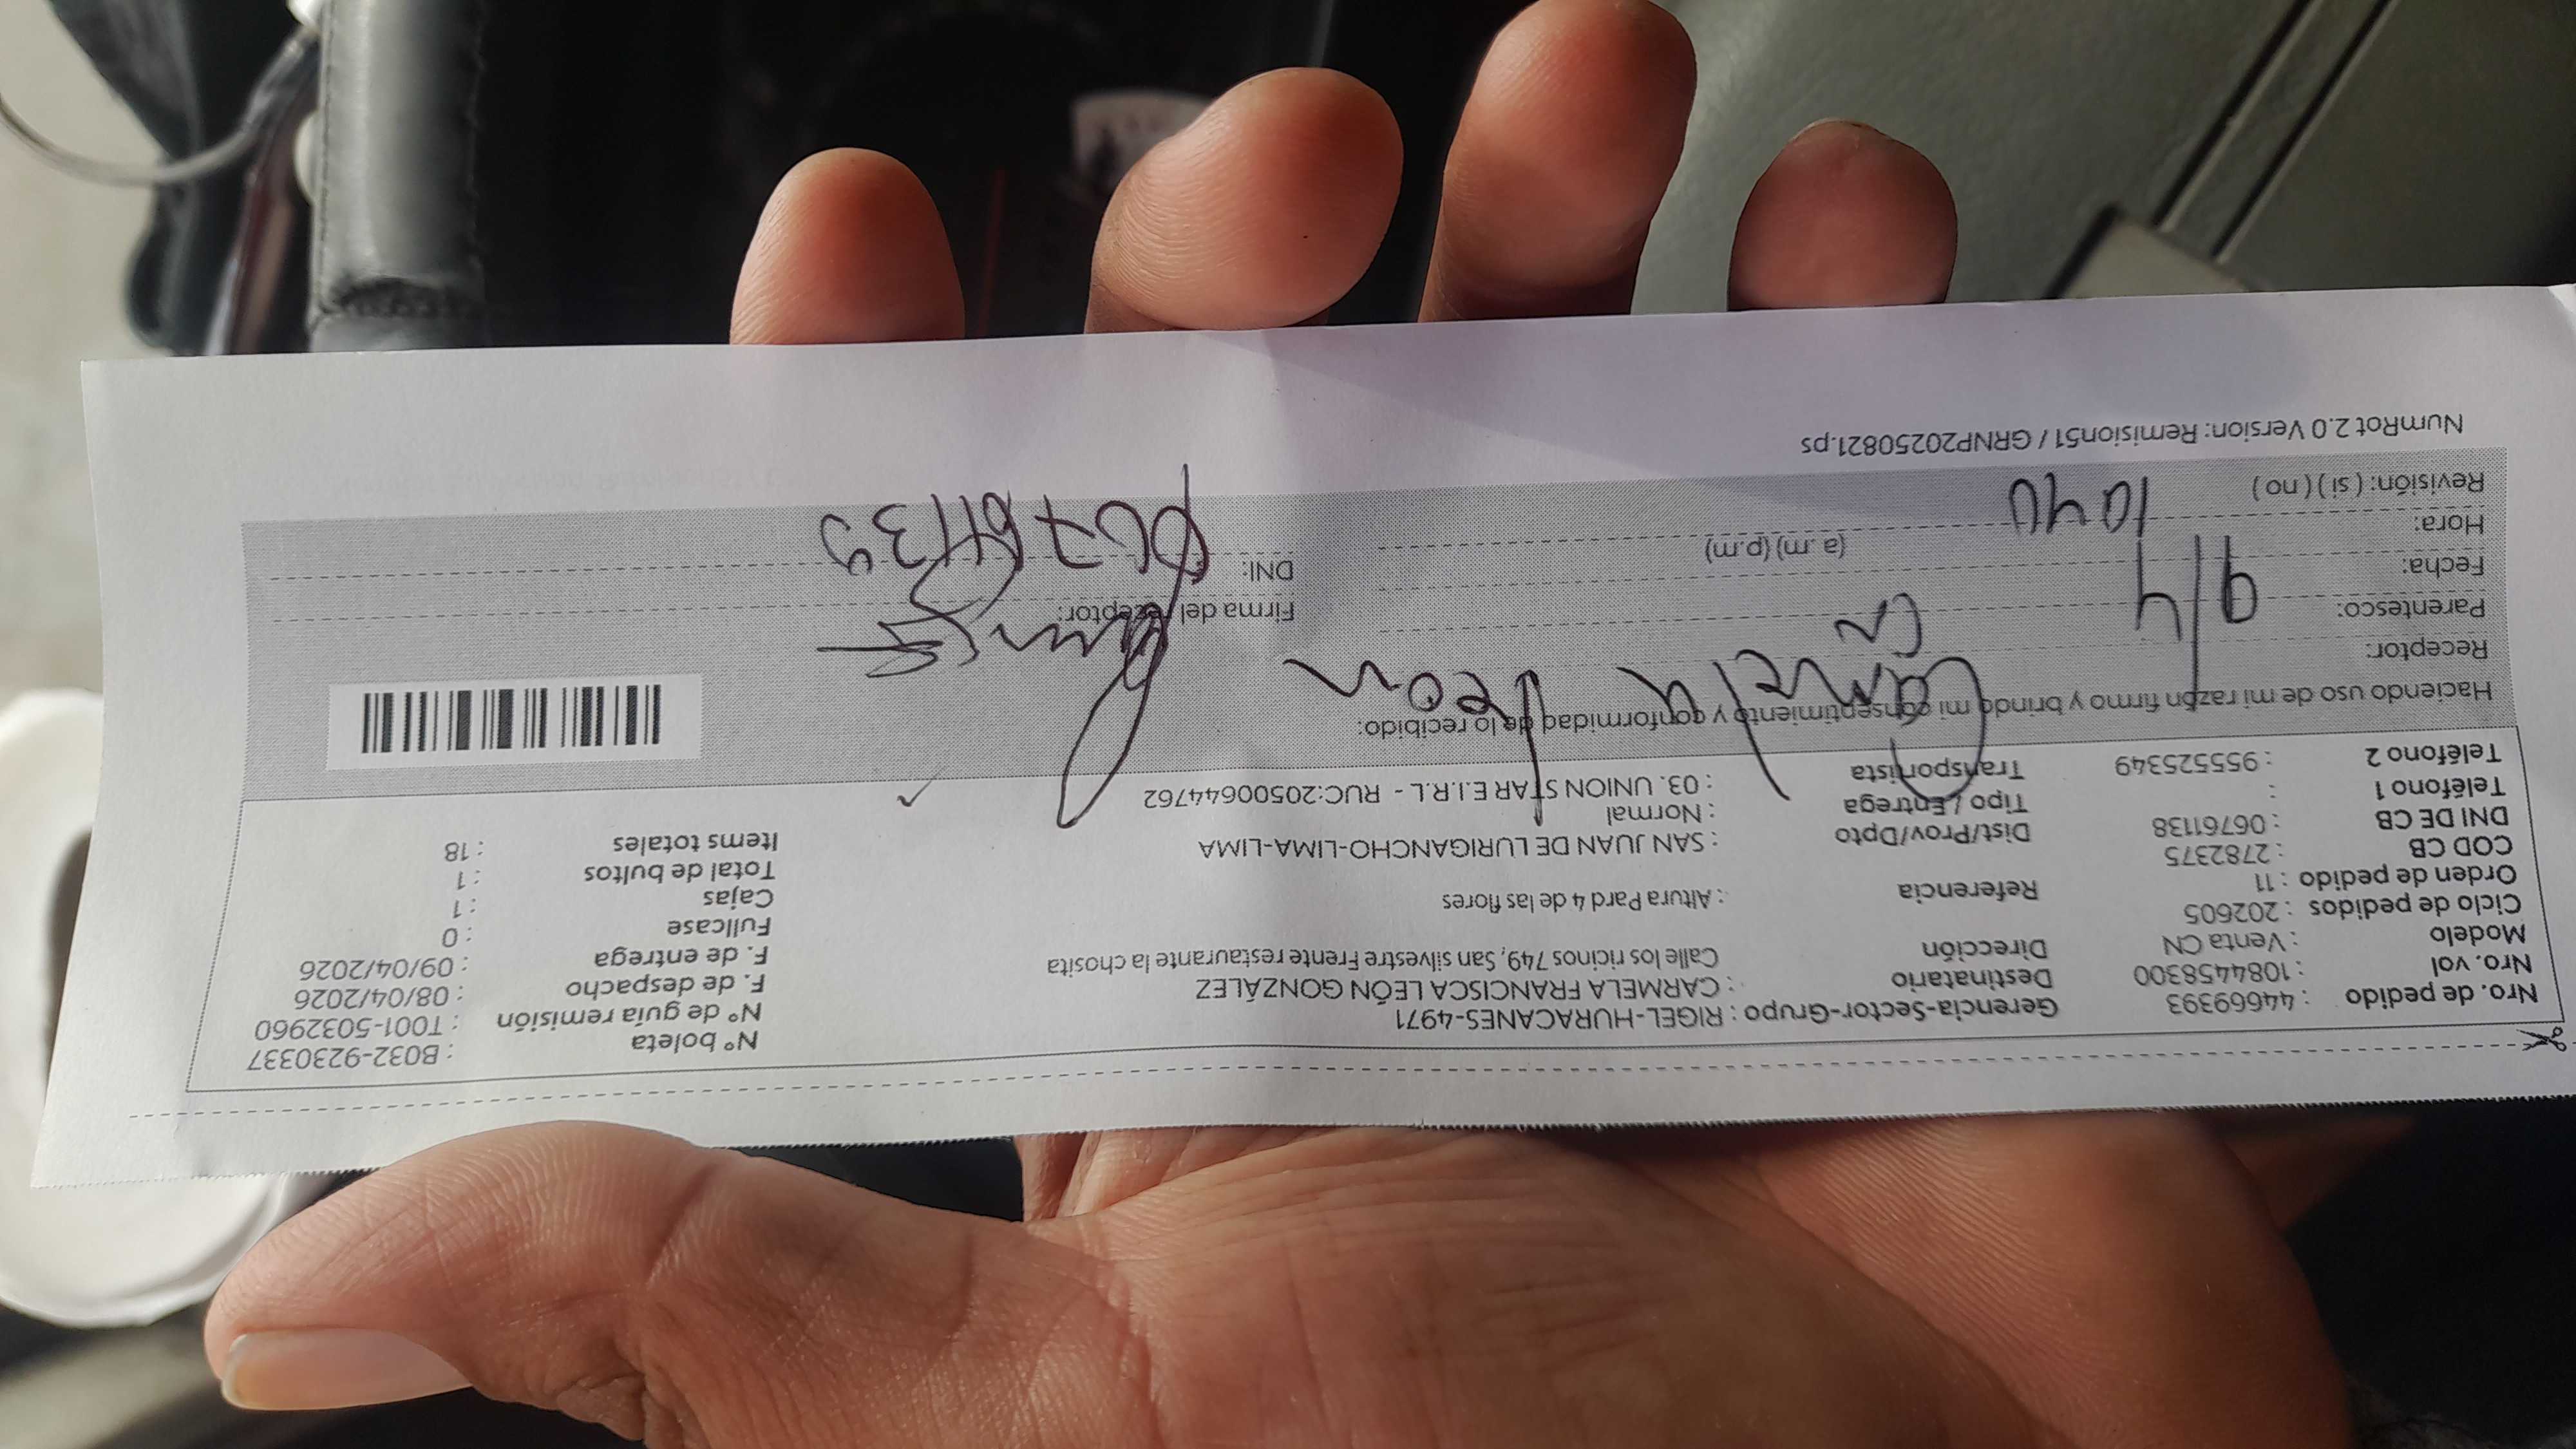 Nro. de pedido : 44669393 Gerencia-Sector-Grupo : RIGEL-HURACANES-4971 N° boleta : B032-9230337
Nro. vol : 1084458300 Destinatario : CARMELA FRANCISCA LEÓN GONZÁLEZ N° de guía remisión : T001-5032960
Modelo : Venta CN Dirección Calle los ricinos 749, San silvestre Frente restaurante la chosita F. de despacho : 08/04/2026
Ciclo de pedidos : 202605 F. de entrega : 09/04/2026
Orden de pedido : 11 Referencia : Altura Pard 4 de las flores Fullcase : 0
COD CB : 2782375 Cajas : 1
DNI DE CB : 06761138 Dist/Prov/Dpto : SAN JUAN DE LURIGANCHO-LIMA-LIMA Total de bultos : 1
Teléfono 1 : Tipo / Entrega : Normal Items totales : 18
Teléfono 2 : 955525349 Transportista : 03. UNION STAR E.I.R.L - RUC:20500644762
Haciendo uso de mi razón firmo y brindo mi consentimiento y conformidad de lo recibido:
Receptor: Carmela Leon
Parentesco: CN Firma del receptor:
Fecha: 9/4 DNI:
Hora: 10 40 (a. m) (p.m)
Revisión: ( si ) ( no )
NumRot 2.0 Version: Remision51 / GRNP20250821.ps